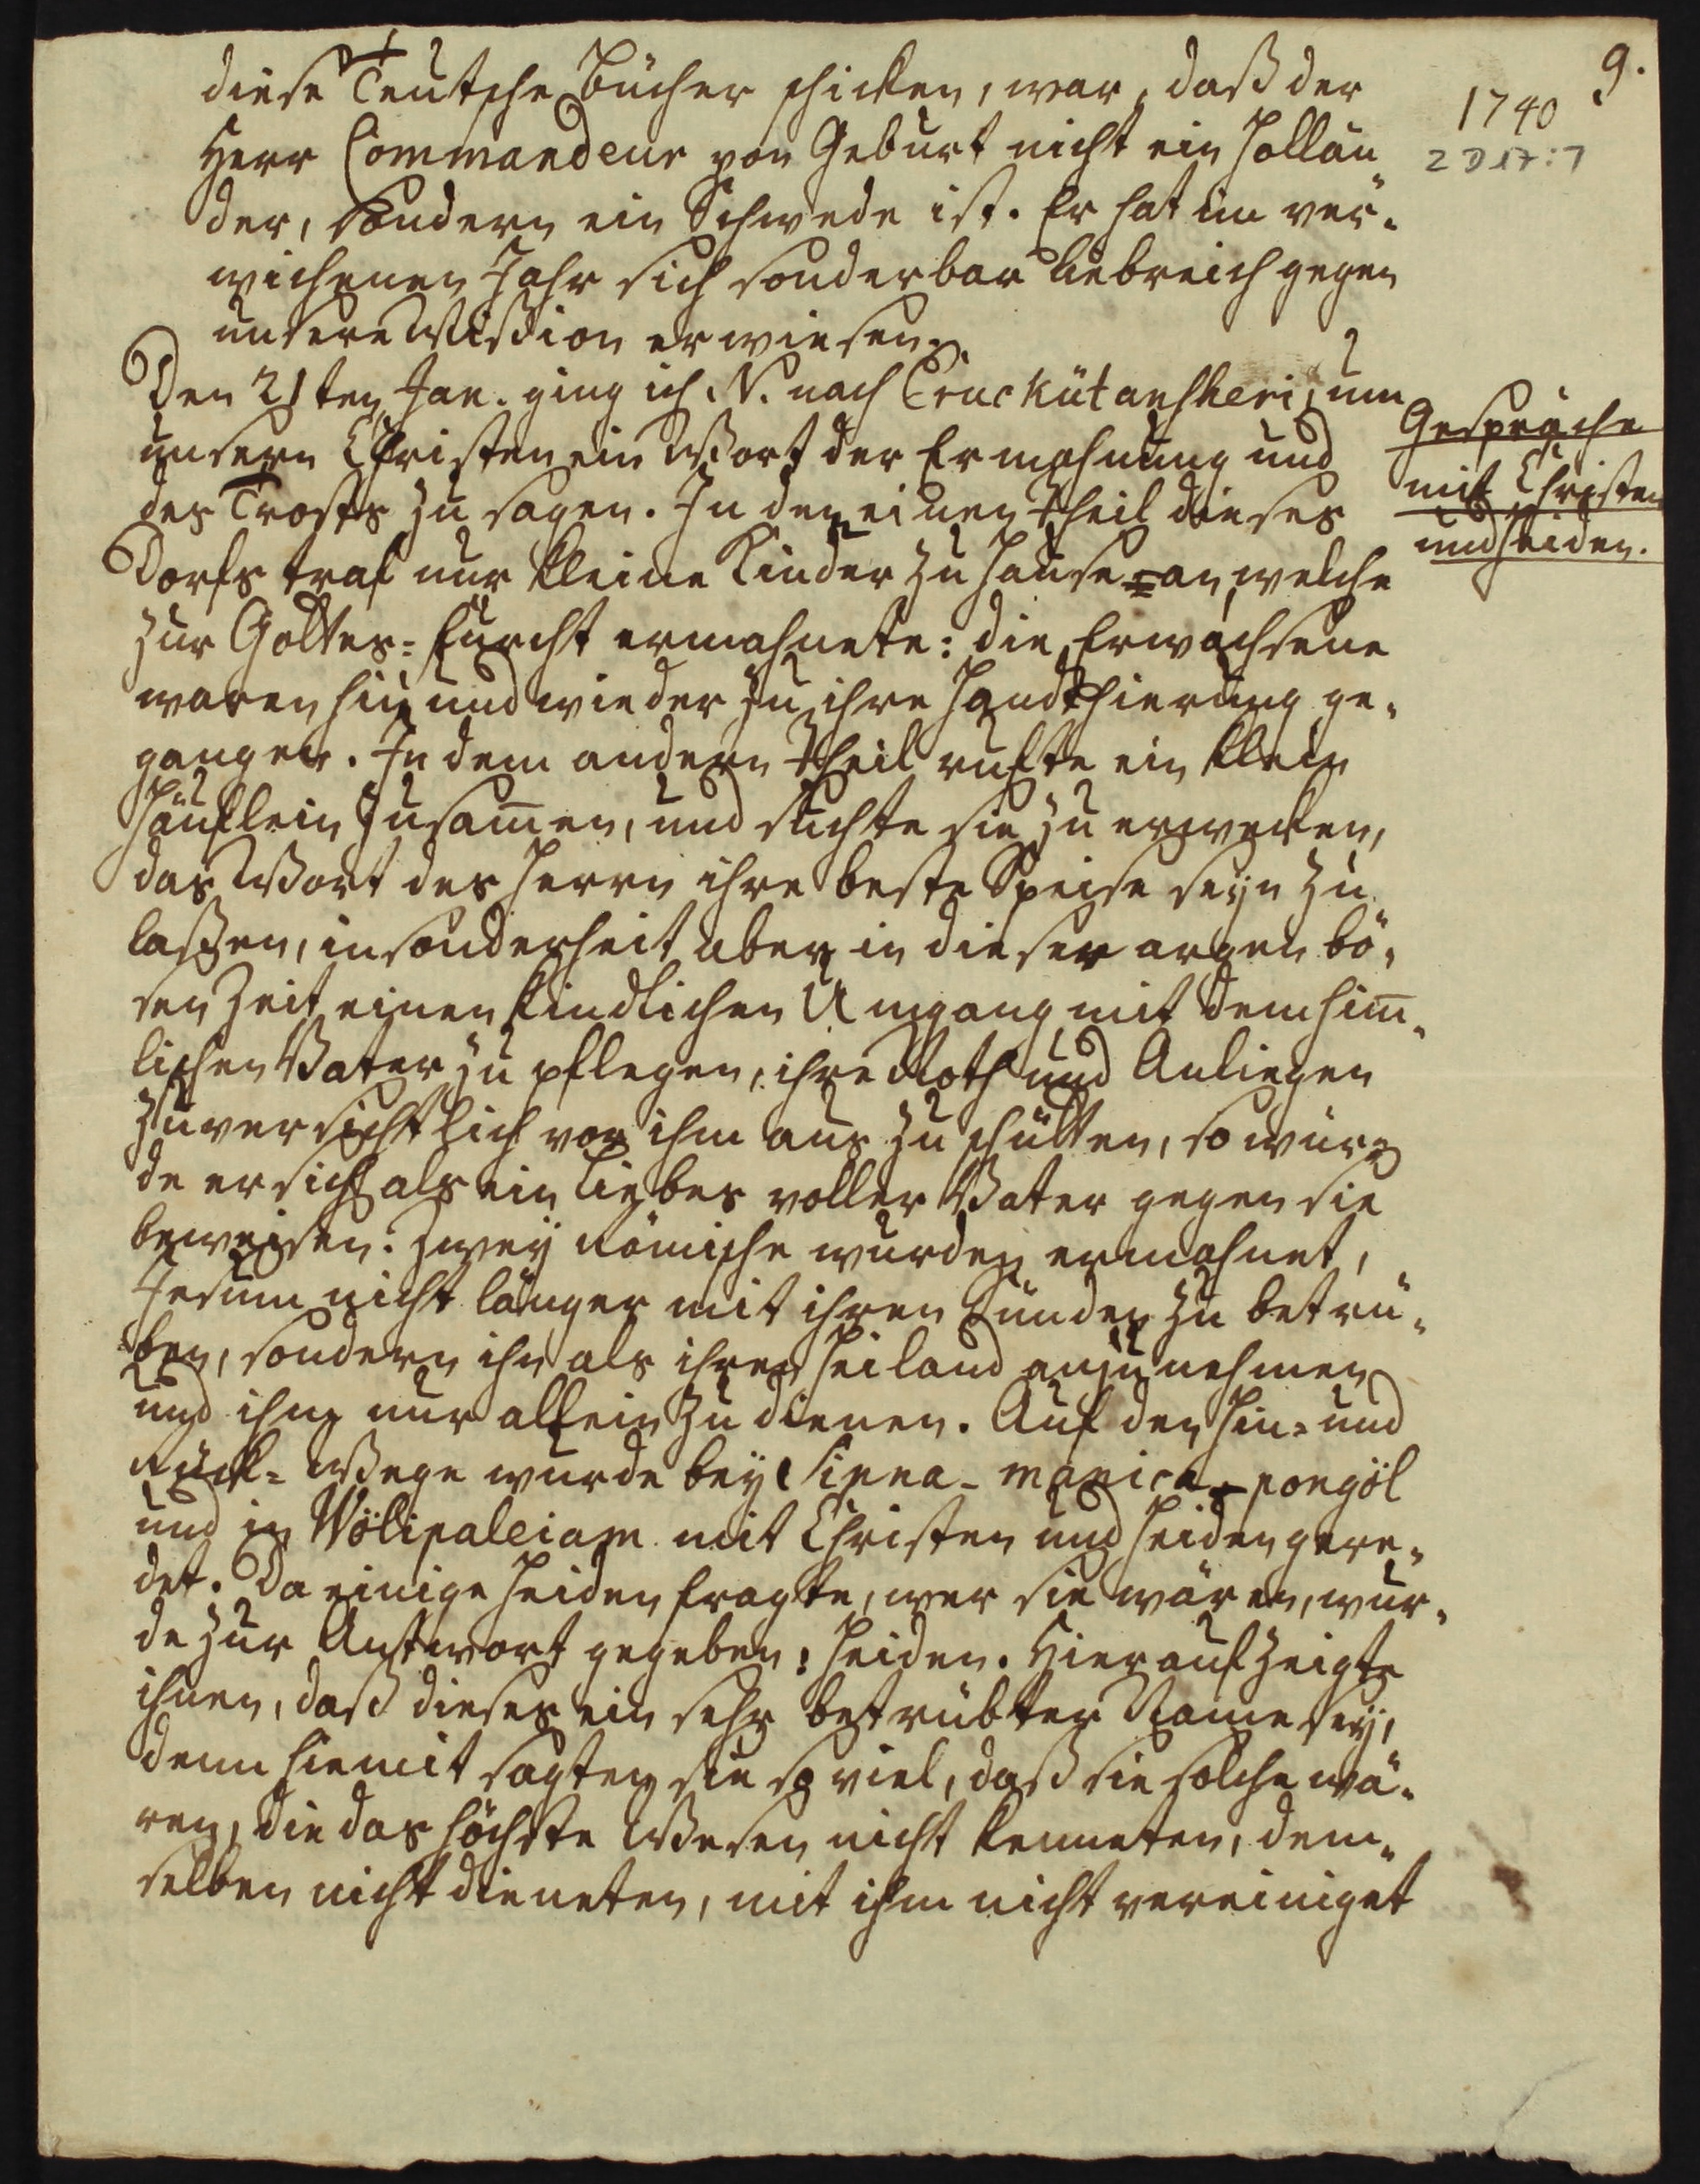 9.
1740
2 D 17:7
diese Teutsche Bücher schicken, war, daß der
Herr Commandeur von Geburt nicht ein Hollän„
der, sondern ein Schwede ist. Er hat im ver„
wichenen Jahr sich sonderbar liebreich gegen
unsere Mission erwiesen.
Den 21ten Jan. ging ich N. nach Eruckütanscheri, um
unsern Christen ein Wort der Ermahnung und
des Trosts zu sagen. In den einen Theil dieses
Dorfs traf nur kleine Kinder zu Hause an, welche
zur Gottes=furcht ermahnete: die Erwachsene
waren hin und wieder zu ihre Handthierung ge„
gangen. In dem andern Theil rufte ein klein
Häuflein zusam̄en, und suchte sie zu erwecken,
das Wort des Herrn ihre beste Speise seyn zu
laßen, insonderheit aber in dieser argen bö„
sen Zeit einen kindlichen Umgang mit dem him̄„
lischen Vater zu pflegen, ihre Noth und Anliegen
zuversichtlich vor ihm aus zu schütten, so wür„
de er sich als ein Liebes voller Vater gegen sie
beweisen. Zwey Römische wurden ermahnet,
Jesum nicht länger mit ihren Sünden zu betrü„
ben, sondern ihn als ihren Heiland anzunehmen
und ihm nur allein zu dienen. Auf den Hin= und
Rück=Wege wurde bey Sinna-manica-pongöl
und in Wölipaleiam mit Christen und Heiden gere„
det. Da einige Heiden fragte, wer sie wären, wur„
de zur Antwort gegeben: Heiden. Hierauf zeigte
ihnen, daß dieses ein sehr betrübter Name sey,
denn hiemit sagten sie so viel, daß sie solche wä„
ren, die das höchste Wesen nicht kenneten, dem„
selben nicht dieneten, mit ihm nicht vereiniget
Gespräche
mit Christen
und Heiden.